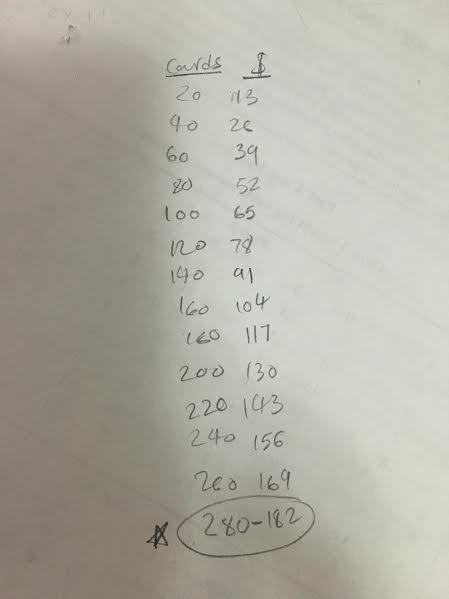 Cards $
20 13
40 26
60 39
80 52
100 65
120 78
140 91
160 104
160 117
200 130
220 143
240 156
260 169
280-182